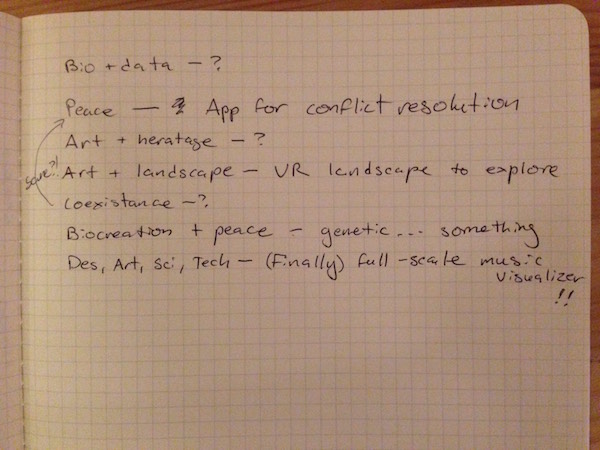 Bio + data - ?
Peace — ? App for conflict resolution
Art + heratage - ?
same?! Art + landscape - VR landscape to explore
Coexistance - ?
Biocreation + peace - genetic... something
Des, Art, Sci, Tech - (Finally) full-scale music
visualizer
!!